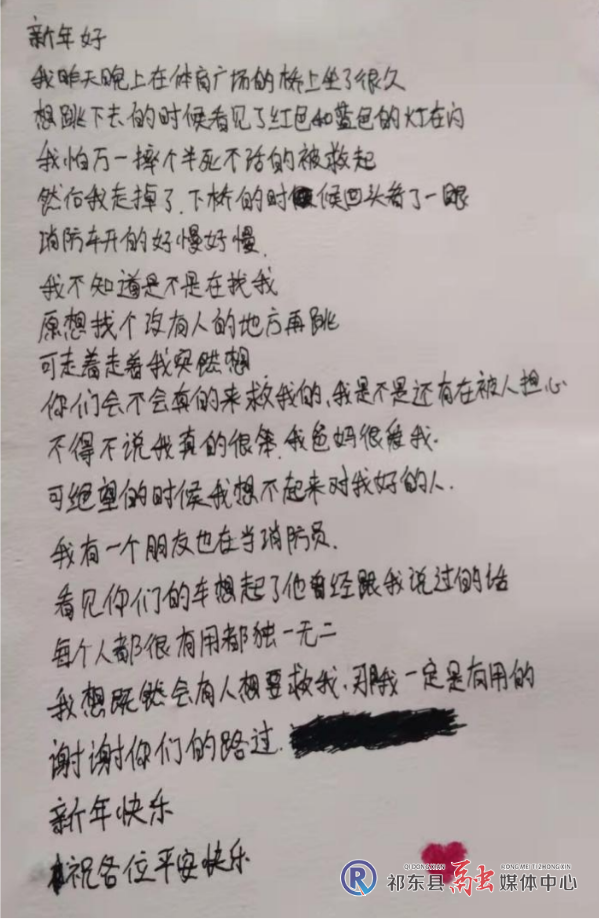 新年好
我昨天晚上在体育广场的桥上坐了很久
想跳下去的时候看见了红色和蓝色的灯在闪
我怕万一摔个半死不活的被救起
然后我走掉了.下桥的时候回头看了一眼
消防车开的好慢好慢.
我不知道是不是在找我
原想找个没有人的地方再跳
可走着走着我突然想
你们会不会真的来救我的,我是不是还有在被人担心
不得不说我真的很笨.我爸妈很爱我.
可绝望的时候我想不起来对我好的人.
我有一个朋友也在当消防员.
看见你们的车想起了他曾经跟我说过的话
每个人都很有用都独一无二
我想既然会有人想要救我,那我一定是有用的
谢谢你们的路过.
新年快乐
祝各位平安快乐
QIDONGXIAN RONGMEITIZHONGXIN
祁东县融媒体中心